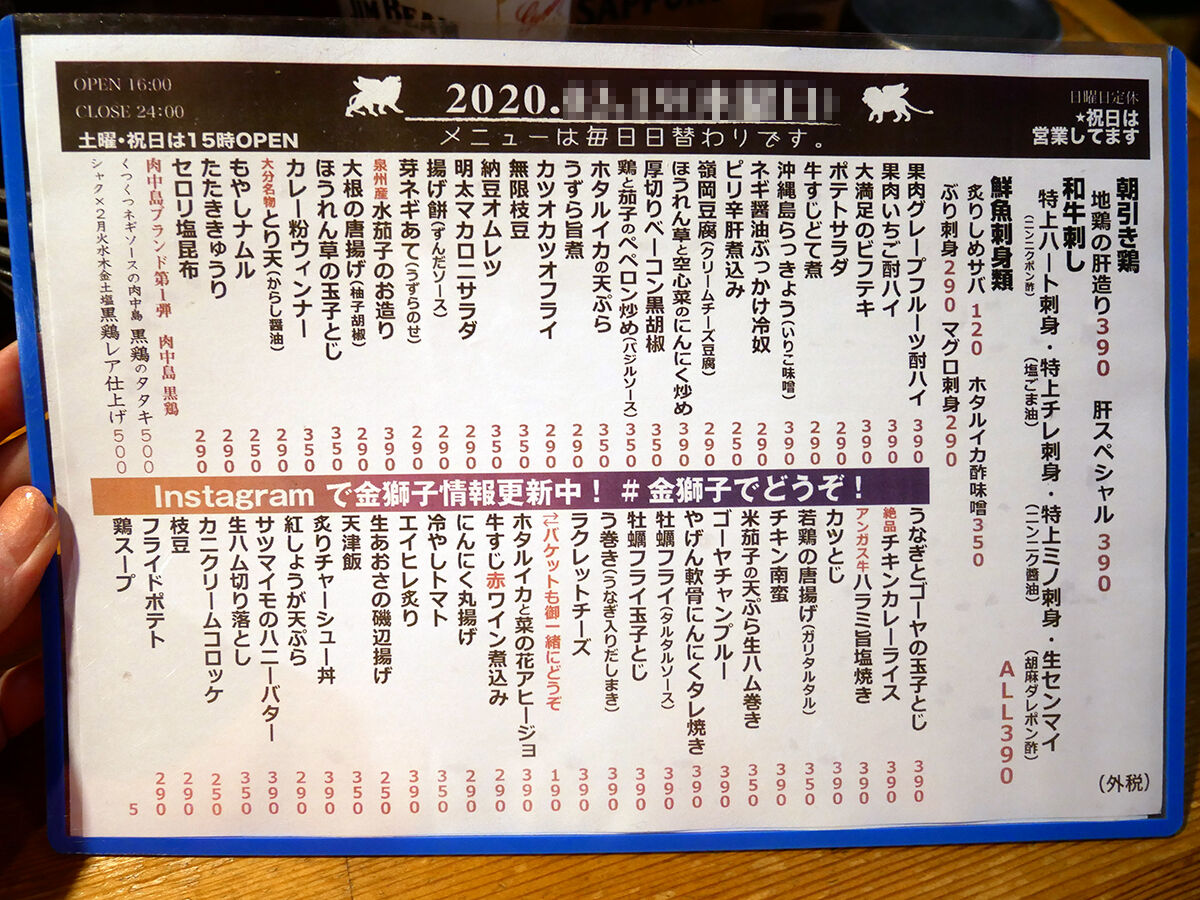 OPEN 16:00
CLOSE 24:00
土曜・祝日は15時OPEN
2020.
メニューは毎日日替わりです。
日曜日定休
★祝日は
営業してます
朝引き鶏
地鶏の肝造り390 肝スペシャル 390
和牛刺し
特上ハート刺身・特上チレ刺身・特上ミノ刺身・生センマイ
(ニンニクポン酢) (塩ごま油) (ニンニク醤油) (胡麻ダレポン酢)
ALL390
(外税)
鮮魚刺身類
炙りしめサバ 120 ホタルイカ酢味噌350
ぶり刺身290 マグロ刺身290
果肉グレープフルーツ酎ハイ 390
果肉いちご酎ハイ 390
大満足のビフテキ 390
ポテトサラダ 290
牛すじどて煮 290
沖縄島らっきょう(いりこ味噌) 390
ネギ醤油ぶっかけ冷奴 290
ピリ辛肝煮込み 250
嶺岡豆腐(クリームチーズ豆腐) 290
ほうれん草と空心菜のにんにく炒め 390
厚切りベーコン黒胡椒 350
鶏と茄子のペペロン炒め(バジルソース) 350
ホタルイカの天ぷら 350
うずら旨煮 290
カツオカツオフライ 290
無限枝豆 350
納豆オムレツ 350
明太マカロニサラダ 290
揚げ餅(ずんだソース) 290
芽ネギあて(うずらのせ) 290
泉州産水茄子のお造り 390
大根の唐揚げ(柚子胡椒) 290
ほうれん草の玉子とじ 350
カレー粉ウィンナー 350
大分名物とり天(からし醤油) 250
もやしナムル 250
たたききゅうり 290
セロリ塩昆布 290
肉中島ブランド第1弾 肉中島 黒鶏
くっつくネギソースの肉中島 黒鶏のタタキ 500
シャク×2月火水木金土塩黒鶏レア仕上げ 500
Instagram で金獅子情報更新中！ #金獅子でどうぞ！
うなぎとゴーヤの玉子とじ 390
絶品チキンカレーライス 390
アンガス牛ハラミ旨塩焼き 390
カツとじ 390
若鶏の唐揚げ(ガリタルタル) 390
チキン南蛮 390
米茄子の天ぷら生ハム巻き 350
ゴーヤチャンプルー 390
やげん軟骨にんにくタレ焼き 390
牡蠣フライ(タルタルソース) 390
牡蠣フライ玉子とじ 390
う巻き(うなぎ入りだしまき) 390
ラクレットチーズ 390
⇄バケットも御一緒にどうぞ 190
ホタルイカと菜の花アヒージョ 390
牛すじ赤ワイン煮込み 290
にんにく丸揚げ 290
冷やしトマト 250
エイヒレ炙り 390
生あおさの磯辺揚げ 350
天津飯 350
炙りチャーシュー丼 390
紅しょうが天ぷら 290
サツマイモのハニーバター 390
生ハム切り落とし 350
カニクリームコロッケ 250
枝豆 290
フライドポテト 290
鶏スープ 5